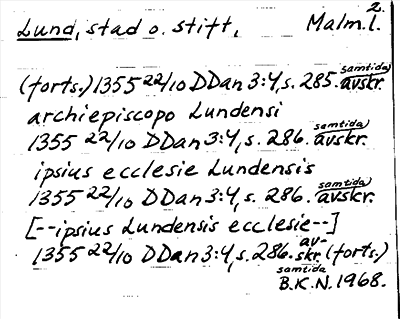 2.
Lund, stad o. stift, Malm. l.
(forts.) 1355 22/10 DDan 3:4, s. 285. samtida avskr.
archiepiscopo Lundensi
1355 22/10 DDan 3:4, s. 286. samtida avskr.
ipsius ecclesie Lundensis
1355 22/10 DDan 3:4, s. 286. samtida avskr.
[--ipsius Lundensis ecclesie--]
1355 22/10 DDan 3:4, s. 286. samtida av-skr. (forts.)
B.K.N. 1968.